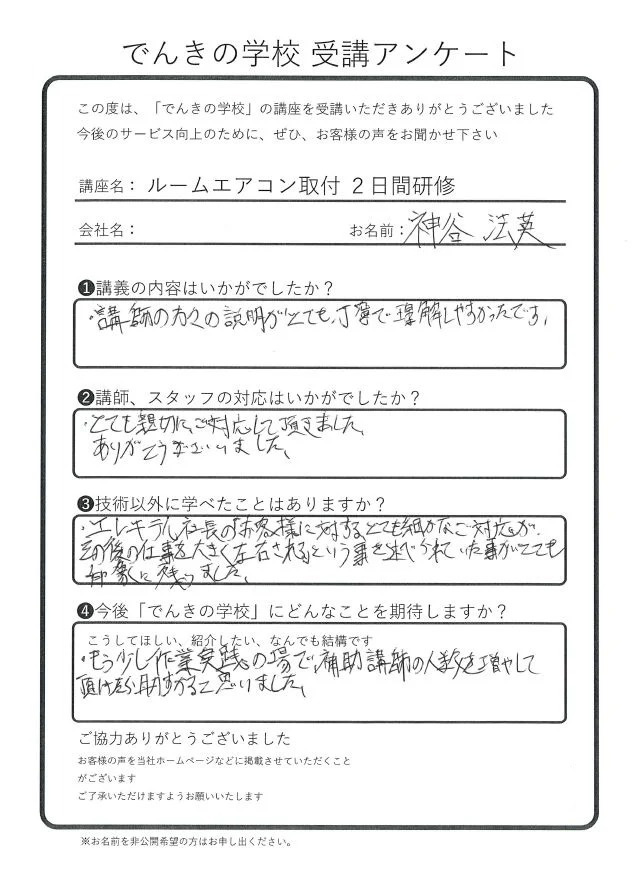 でんきの学校 受講アンケート
この度は、「でんきの学校」の講座を受講いただきありがとうございました
今後のサービス向上のために、ぜひ、お客様の声をお聞かせ下さい
講座名： ルームエアコン取付 ２日間研修
会社名： お名前： 神谷 法英
❶講義の内容はいかがでしたか？
・講師の方々の説明がとても、丁寧で理解しやすかったです。
❷講師、スタッフの対応はいかがでしたか？
・とても親切に、ご対応して頂きました。
ありがとうございました。
❸技術以外に学べたことはありますか？
・エレキテル社長の「お客様に対するとても細かなご対応が、
その後の仕事を大きく左右されるという事を述べられていた事がとても
印象に残りました。
❹今後「でんきの学校」にどんなことを期待しますか？
こうしてほしい、紹介したい、なんでも結構です
・もう少し作業実践の場で、補助講師の人数を増やして
頂けたら助かると思いました。
ご協力ありがとうございました
お客様の声を当社ホームページなどに掲載させていただくこと
がございます
ご了承いただけますようお願いいたします
※お名前を非公開希望の方はお申し出ください。